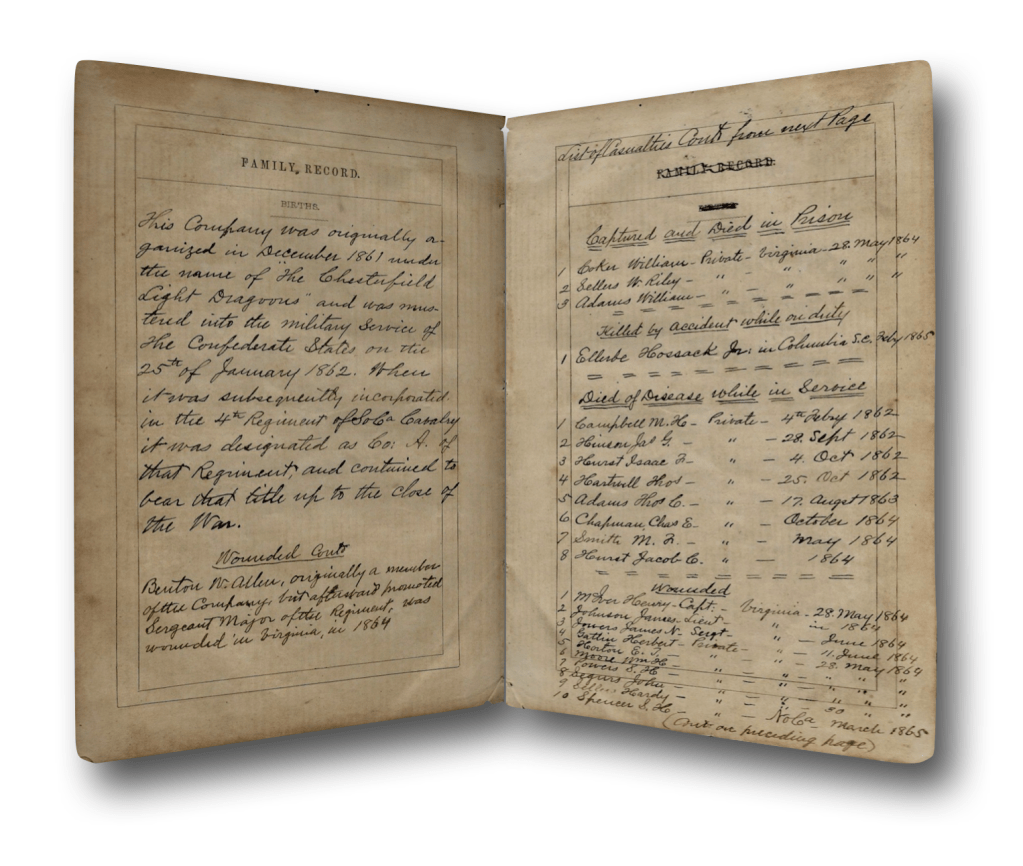 FAMILY RECORD.
BIRTHS.
This Company was originally or-
ganized in December 1861 under
the name of "The Chesterfield
Light Dragoons" and was mus-
tered into the military service of
the Confederate States, on the
25th of January 1862. When
it was subsequently incorporated
in the 4th Regiment of So Ca Cavalry
it was designated as Co: A. of
that Regiment, and continued to
bear that title up to the close of
the War.
Wounded Contd
Benton W. Allen, originally a member
of the Company, but afterward promoted
Sergeant Major of the Regiment, was
wounded in Virginia, in 1864
List of Casualties Contd from next Page
FAMILY RECORD.
Captured and Died in Prison
1 Coker William - Private - Virginia - 28. May 1864
2 Sellers W. Riley - " - " " " "
3 Adams William - " - " " " "
Killed by accident while on duty
1 Ellerbe Hossack Jr: in Columbia S.C. Feby 1865
Died of Disease while in Service
1 Campbell M. H - Private - 4th Febry 1862
2 Hinson Jas G. - " - 28. Sept 1862
3 Hurst Isaac F. - " - 4. Oct 1862
4 Hartwill Thos - " - 25. Oct 1862
5 Adams Thos C. - " - 17. Augst 1863
6 Chapman, Chas E - " - October 1864
7 Smith M. F. - " - May 1864
8 Hurst Jacob C. " - 1864
Wounded
1 McIver Henry - Capt: - Virginia - 28. May 1864
2 Johnson James - Lieut - " in 1864
3 Powers James N - Sergt - " - June 1864
4 Gathin Herbert - Private - " - 11. June 1864
5 Horton E. T. - " - " - 28. May 1864
6 Moore Wm H - " - " - " " "
7 Powers E. H - " - " - " " "
8 Segurs John - " - " - " " "
9 Hardy - " - " - 30 " "
10 Spencer S. H. - " - No Ca - March 1865
(Cont on preceding page)